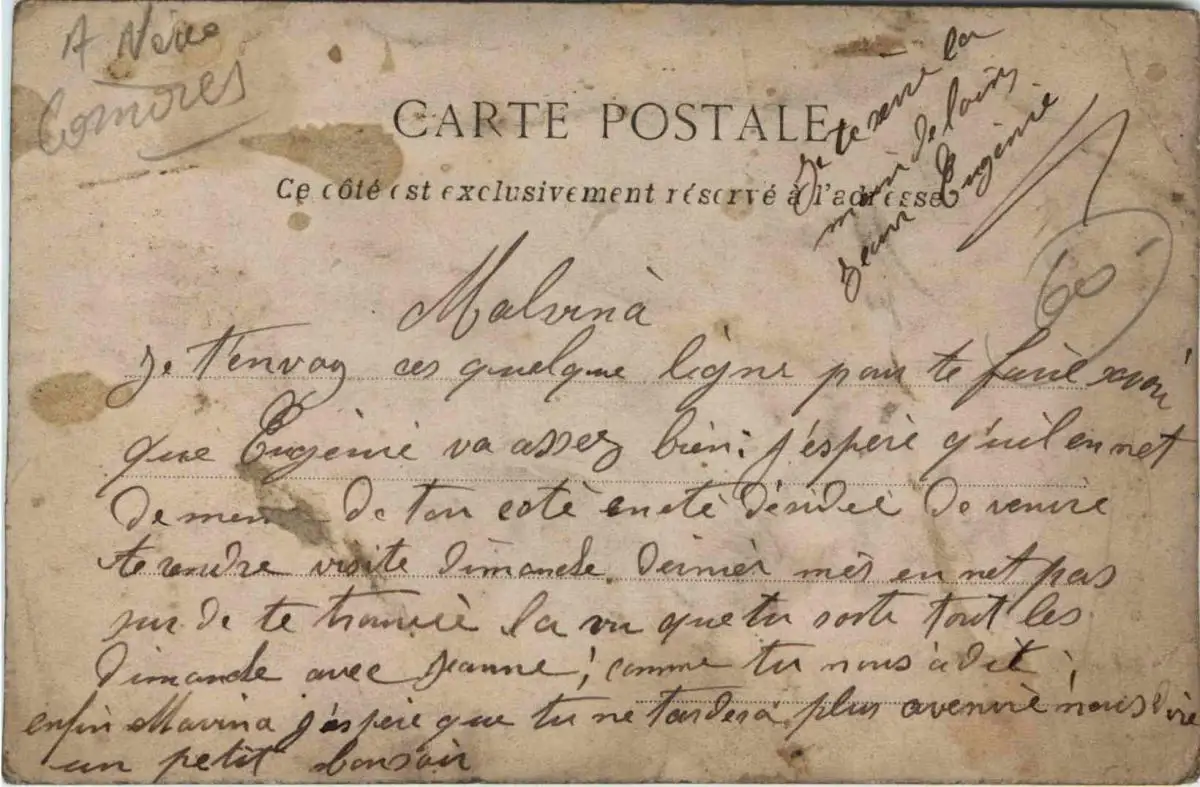 A
Comores
CARTE POSTALE
Ce côté est exclusivement réservé à l'adresse
Je te serre la
main de loin
Eugénie
60
Malvina
Je t'envoy ces quelque ligne pour te faire
que Eugénie va assez bien; j'espère q'uil en net
de meme de ton coté en eté décidée de venire
te rendre visite dimanche dernier mes en net pas
sur de te trouvere la vu que tu sorte tout les
dimande avec Jeanne; comme tu nous à dit;
enfin Mavina j'espère que tu ne tardera plus avenire nous dire
un petit bonsoir